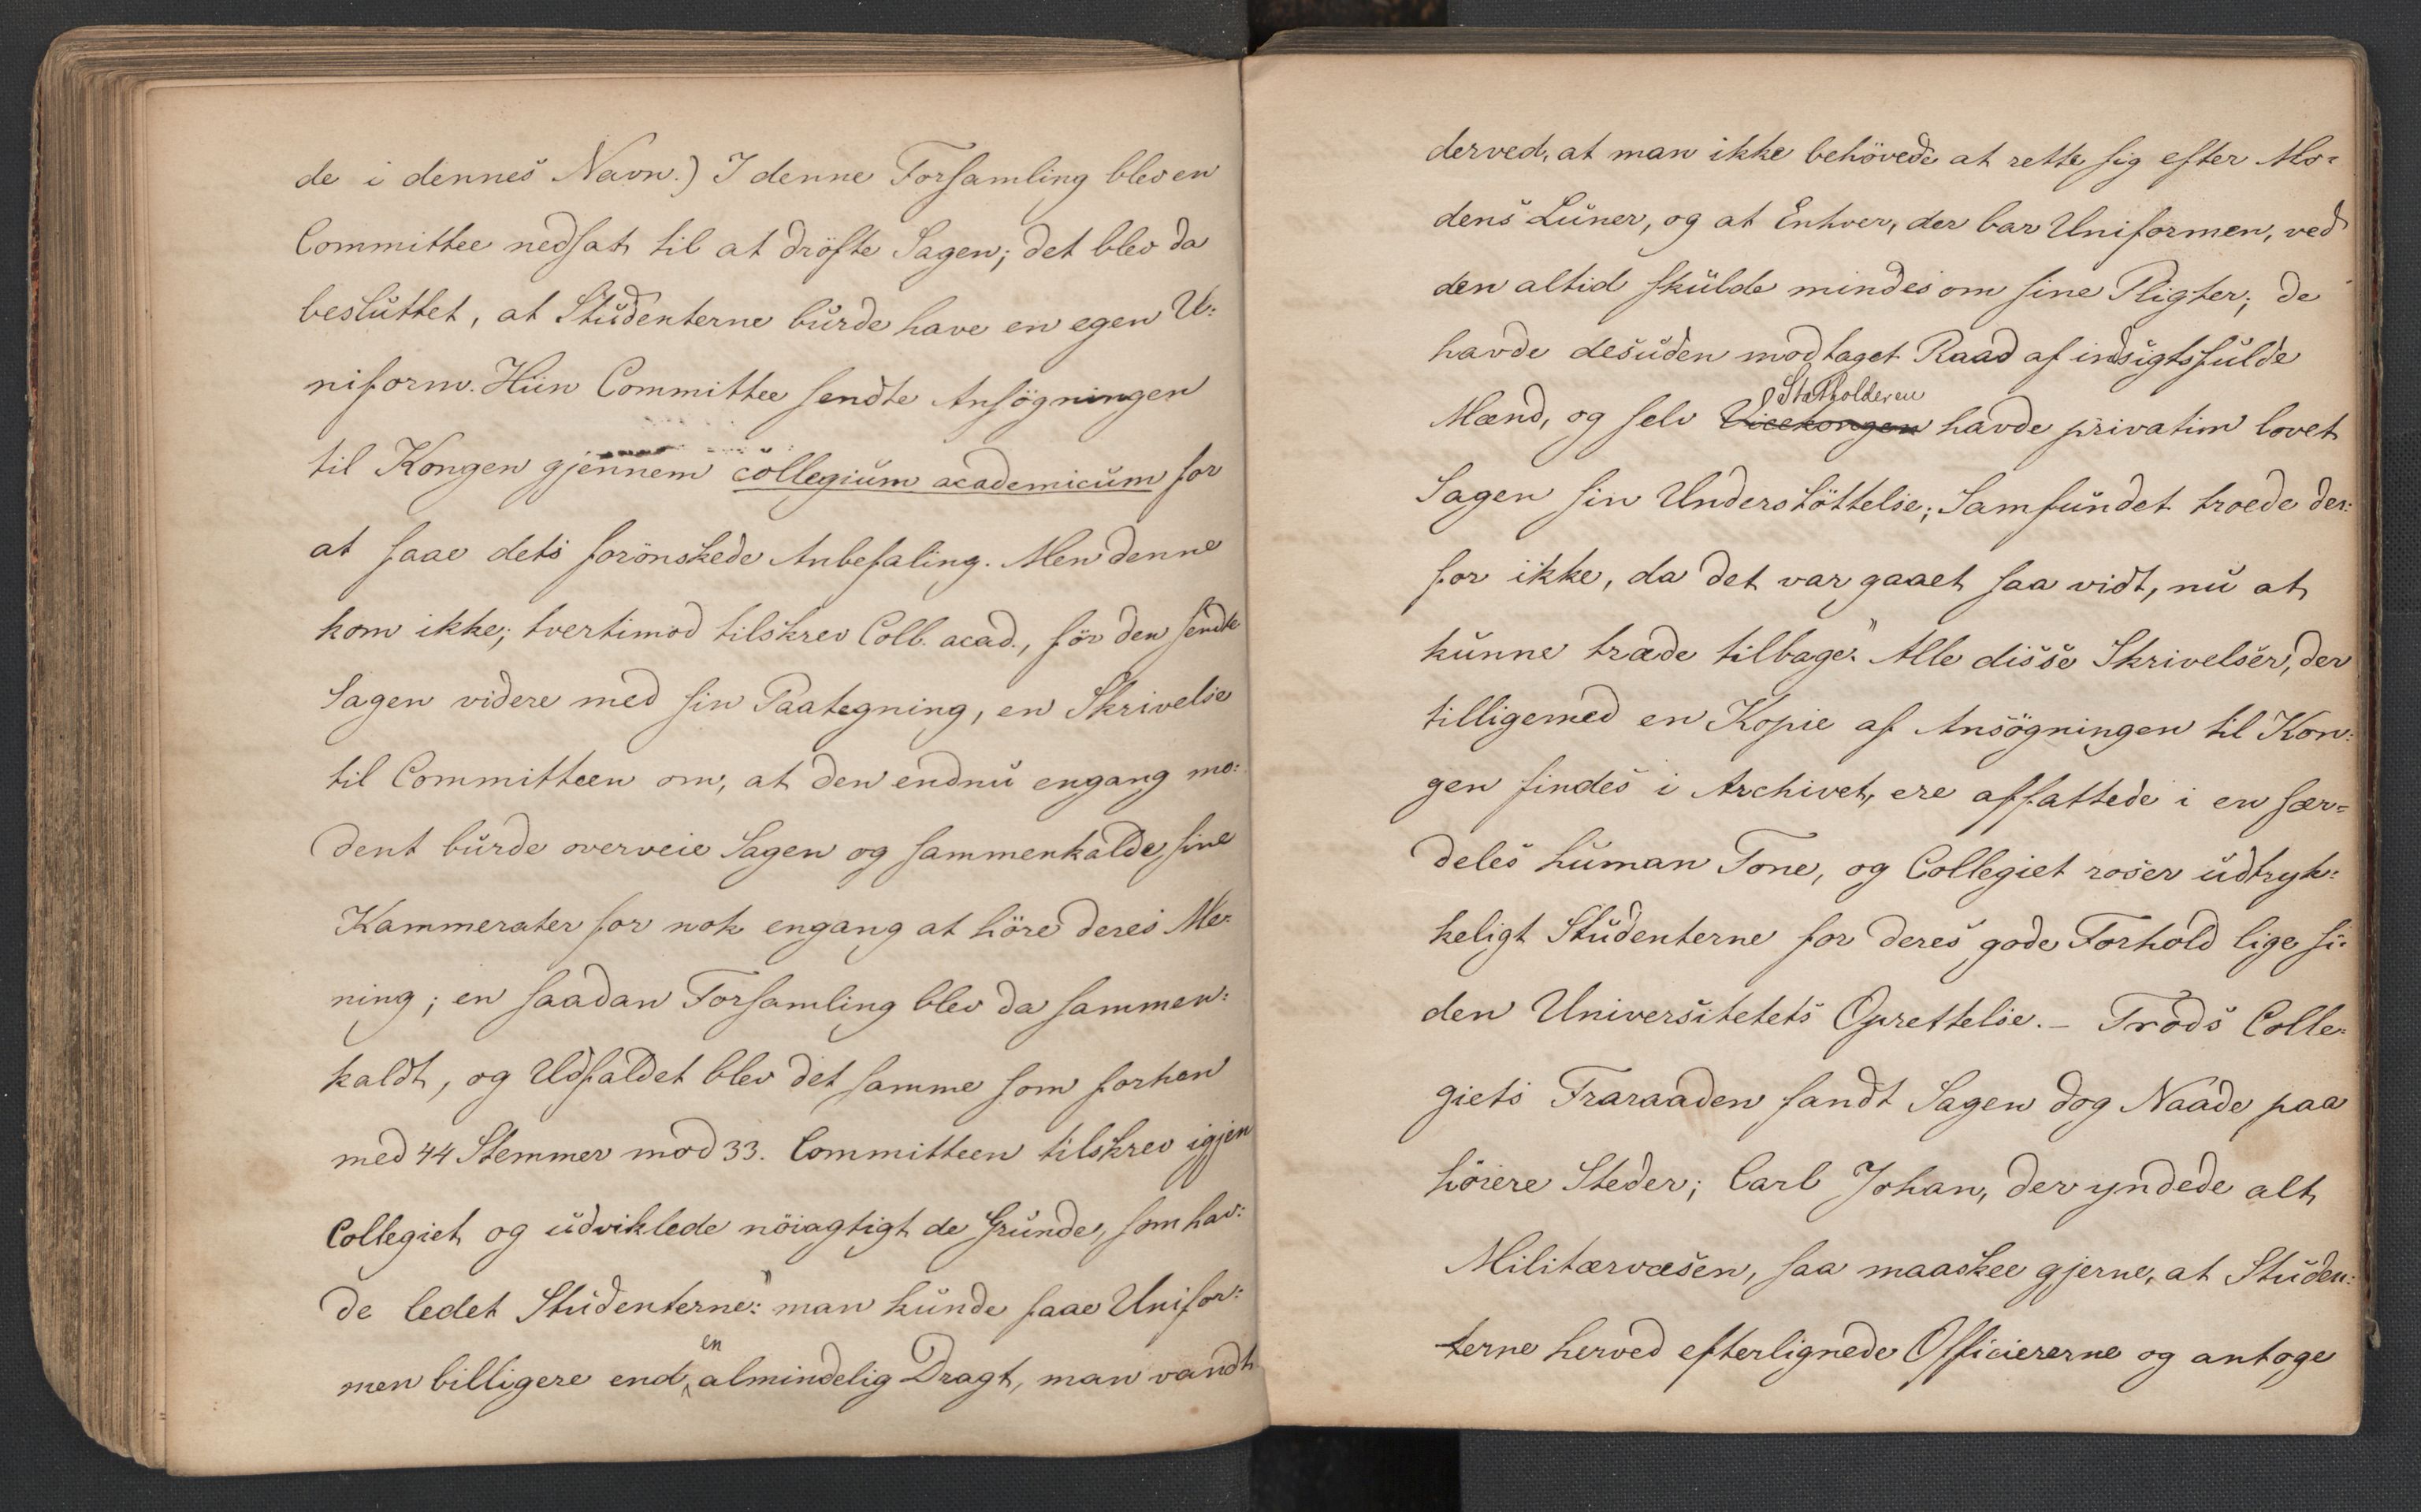 de i dennes Navn.) I denne Forsamling blev en
Committee nedsat til at dröfte Sagen; det blev da
besluttet, at Studenterne burde have en egen U-
niform. Hün Committee sendte Ansögningen
til Kongen gjennem collegium academicum for
at faae dets forönskede Anbefaling. Men denne
kom ikke; tvertimod tilskrev Coll. acad., för den sendte
Sagen videre med sin Paategning, en Skrivelse
til Committeen om, at den endnu engang mo-
dent burde overveie Sagen og sammenkalde sine
Kammerater for nok engang at höre deres Me-
ning; en saadan Forsamling blev da sammen-
kaldt, og Udfaldet blev det samme som forhen
med 44 Stemmer mod 33. Committeen tilskrev igjen
Collegiet og udviklede nöiagtigt de Grunde, som hav-
de ledet Studenterne: "man kunde faae Unifor-
men billigere end en almindelig Dragt, man vandt
derved, at man ikke behövede at rette sig efter Mo-
dens Luner, og at Enhver, der bar Uniformen, ved
den altid skulde mindes om sine Pligter; de
havde desuden modtaget Raad af indsigtsfulde
Mænd, og selv Vicekongen Statholderen havde privatim lovet
Sagen sin Understöttelse; Samfundet troede der-
for ikke, da det var gaaet saa vidt, nu at
kunne træde tilbage." Alle disse Skrivelser, der
tilligemed en Kopie af Ansögningen til Kon-
gen findes i Archivet, ere affattede i en sær-
deles human Tone, og Collegiet roser udtryk-
keligt Studenterne for deres gode Forhold lige si-
den Universitetets Oprettelse. – Trods Colle-
giets Fraraaden fandt Sagen dog Naade paa
höiere Steder; Carl Johan, der yndede alt
Militærvæsen, saa maaskee gjerne, at Studen-
terne herved efterlignede Officiererne og antoge